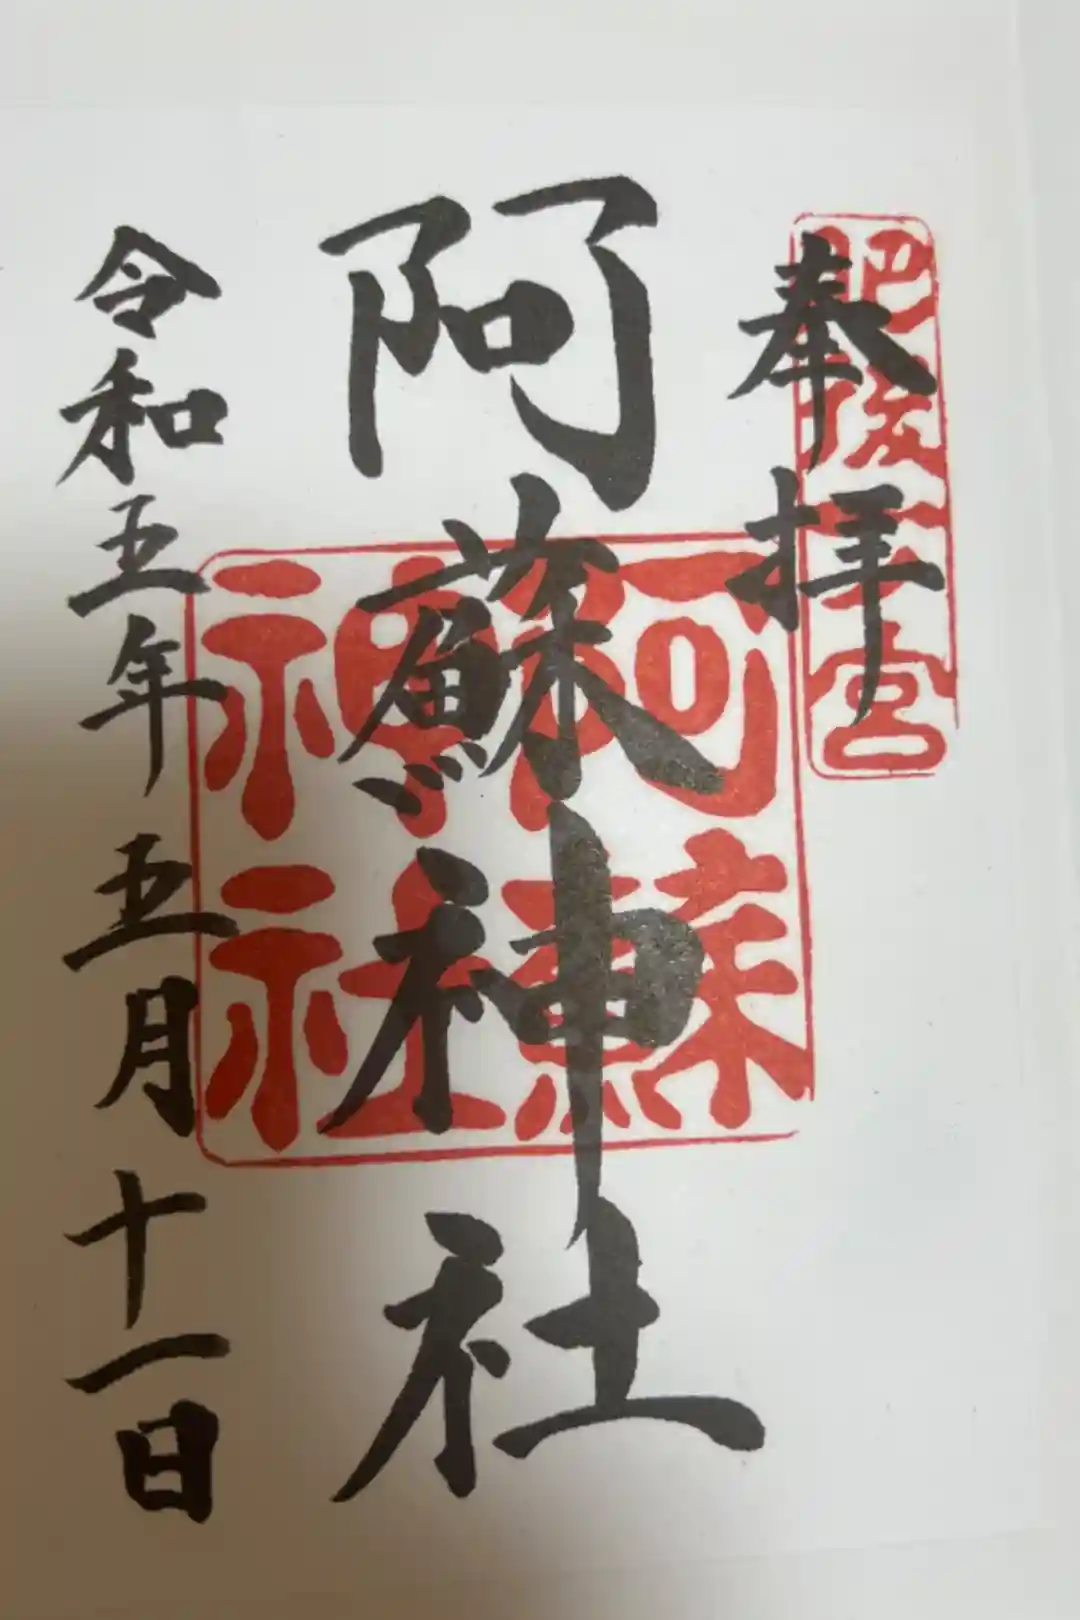 奉拝
肥後一宮
阿蘇神社
阿蘇神社
令和五年五月十一日